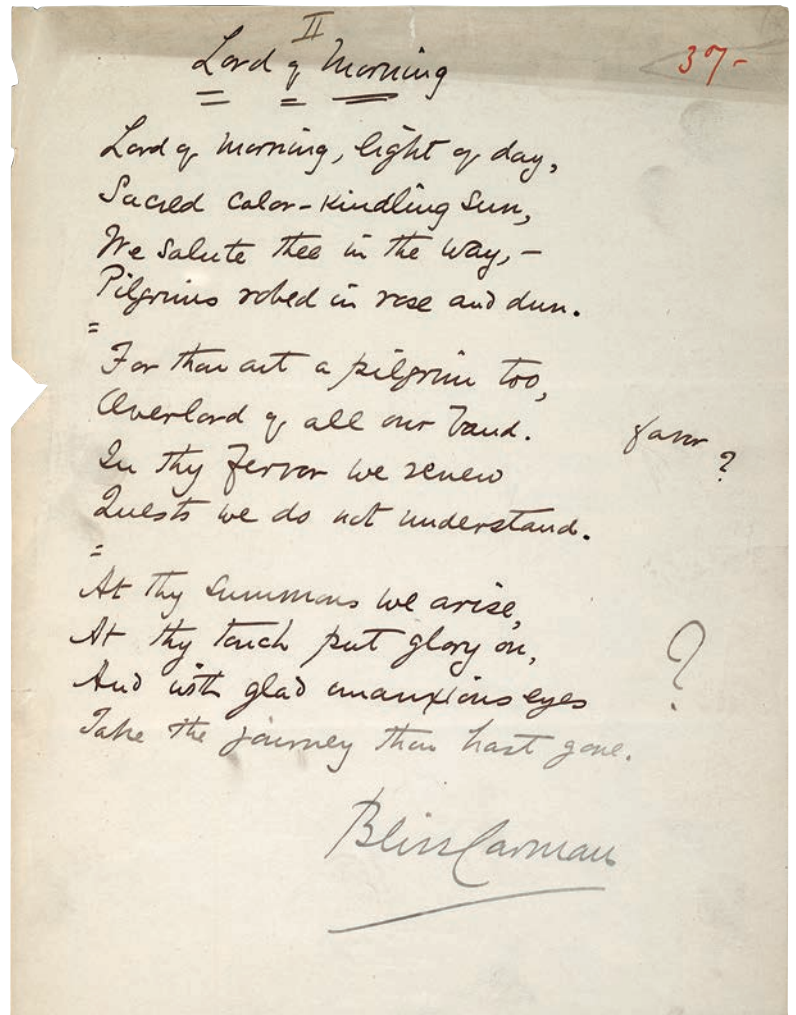 II
Lord of Morning
37-
Lord of Morning, light of day,
Sacred color-kindling sun,
We salute thee in the way, –
Pilgrims robed in rose and dun.
=
For thou art a pilgrim too,
Overlord of all our band.
favor ?
In thy fervor we renew
Quests we do not understand.
=
At thy summons we arise,
At thy touch put glory on,
?
And with glad unanxious eyes
Take the journey thou hast gone.
Bliss Carman